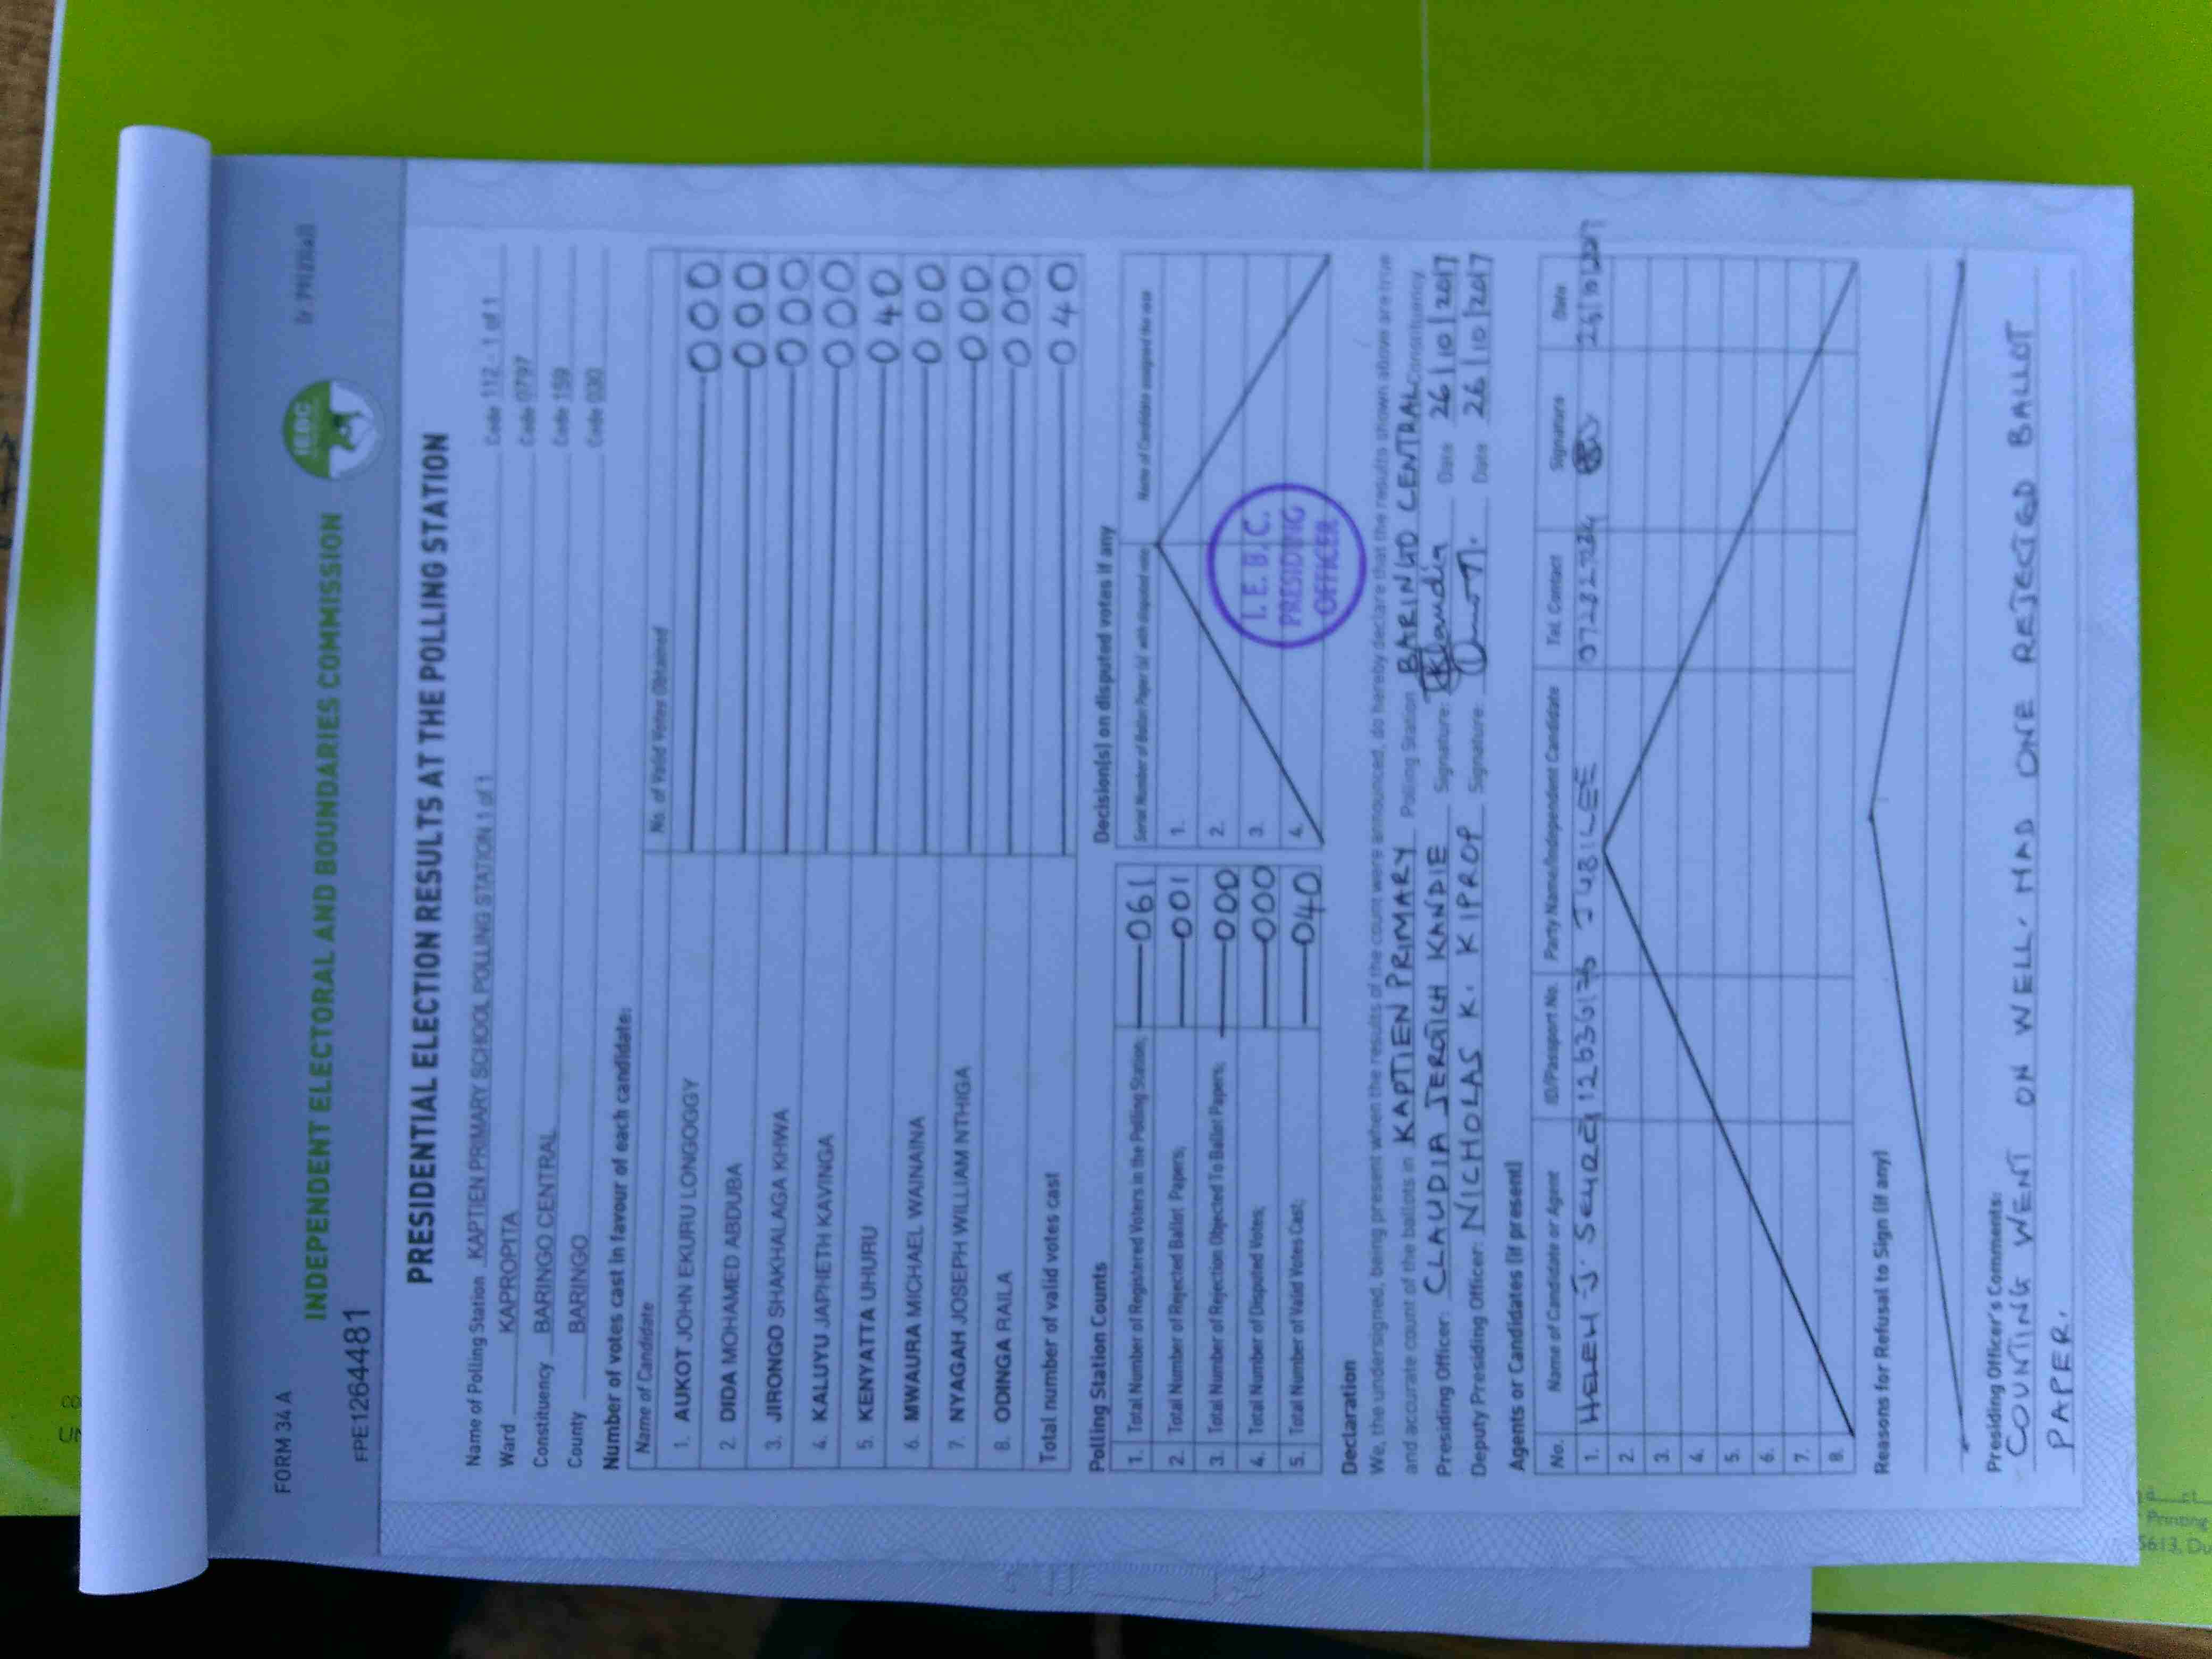 FORM 34 A
INDEPENDENT ELECTORAL AND BOUNDARIES COMMISSION
IEBC
FPE1264481
PRESIDENTIAL ELECTION RESULTS AT THE POLLING STATION
Name of Polling Station KAPTIEN PRIMARY SCHOOL POLLING STATION 1 of 1 Code 112 - 1 of 1
Ward KAPROPITA Code 0797
Constituency BARINGO CENTRAL Code 159
County BARINGO Code 030
Number of votes cast in favour of each candidate:
Name of Candidate No. of Valid Votes Obtained
1. AUKOT JOHN EKURU LONGOGGY 000
2. DIDA MOHAMED ABDUBA 000
3. JIRONGO SHAKHALAGA KHWA 000
4. KALUYU JAPHETH KAVINGA 000
5. KENYATTA UHURU 040
6. MWAURA MICHAEL WAINAINA 000
7. NYAGAH JOSEPH WILLIAM NTHIGA 000
8. ODINGA RAILA 000
Total number of valid votes cast 040
Polling Station Counts
1. Total Number of Registered Voters in the Polling Station; 061
2. Total Number of Rejected Ballot Papers; 001
3. Total Number of Rejection Objected To Ballot Papers; 000
4. Total Number of Disputed Votes; 000
5. Total Number of Valid Votes Cast; 040
Decision(s) on disputed votes if any
Serial Number of Ballot Paper (s) with disputed vote Name of Candidate assigned the vote
1.
2.
3.
4.
I.E.B.C.
PRESIDING
OFFICER
Declaration
We, the undersigned, being present when the results of the count were announced, do hereby declare that the results shown above are true
and accurate count of the ballots in KAPTIEN PRIMARY Polling Station BARINGO CENTRAL Constituency
Presiding Officer: CLAUDIA JEROTICH KANDIE Signature: Date 26/10/2017
Deputy Presiding Officer: NICHOLAS K. KIPROP Signature: Date 26/10/2017
Agents or Candidates (if present)
No. Name of Candidate or Agent ID/Passport No. Party Name/Independent Candidate Tel. Contact Signature Date
1. HELEN J. JUBILEE
2.
3.
4.
5.
6.
7.
8.
Reasons for Refusal to Sign (if any)
Presiding Officer's Comments:
COUNTING WENT ON WELL. HAD ONE REJECTED BALLOT
PAPER.